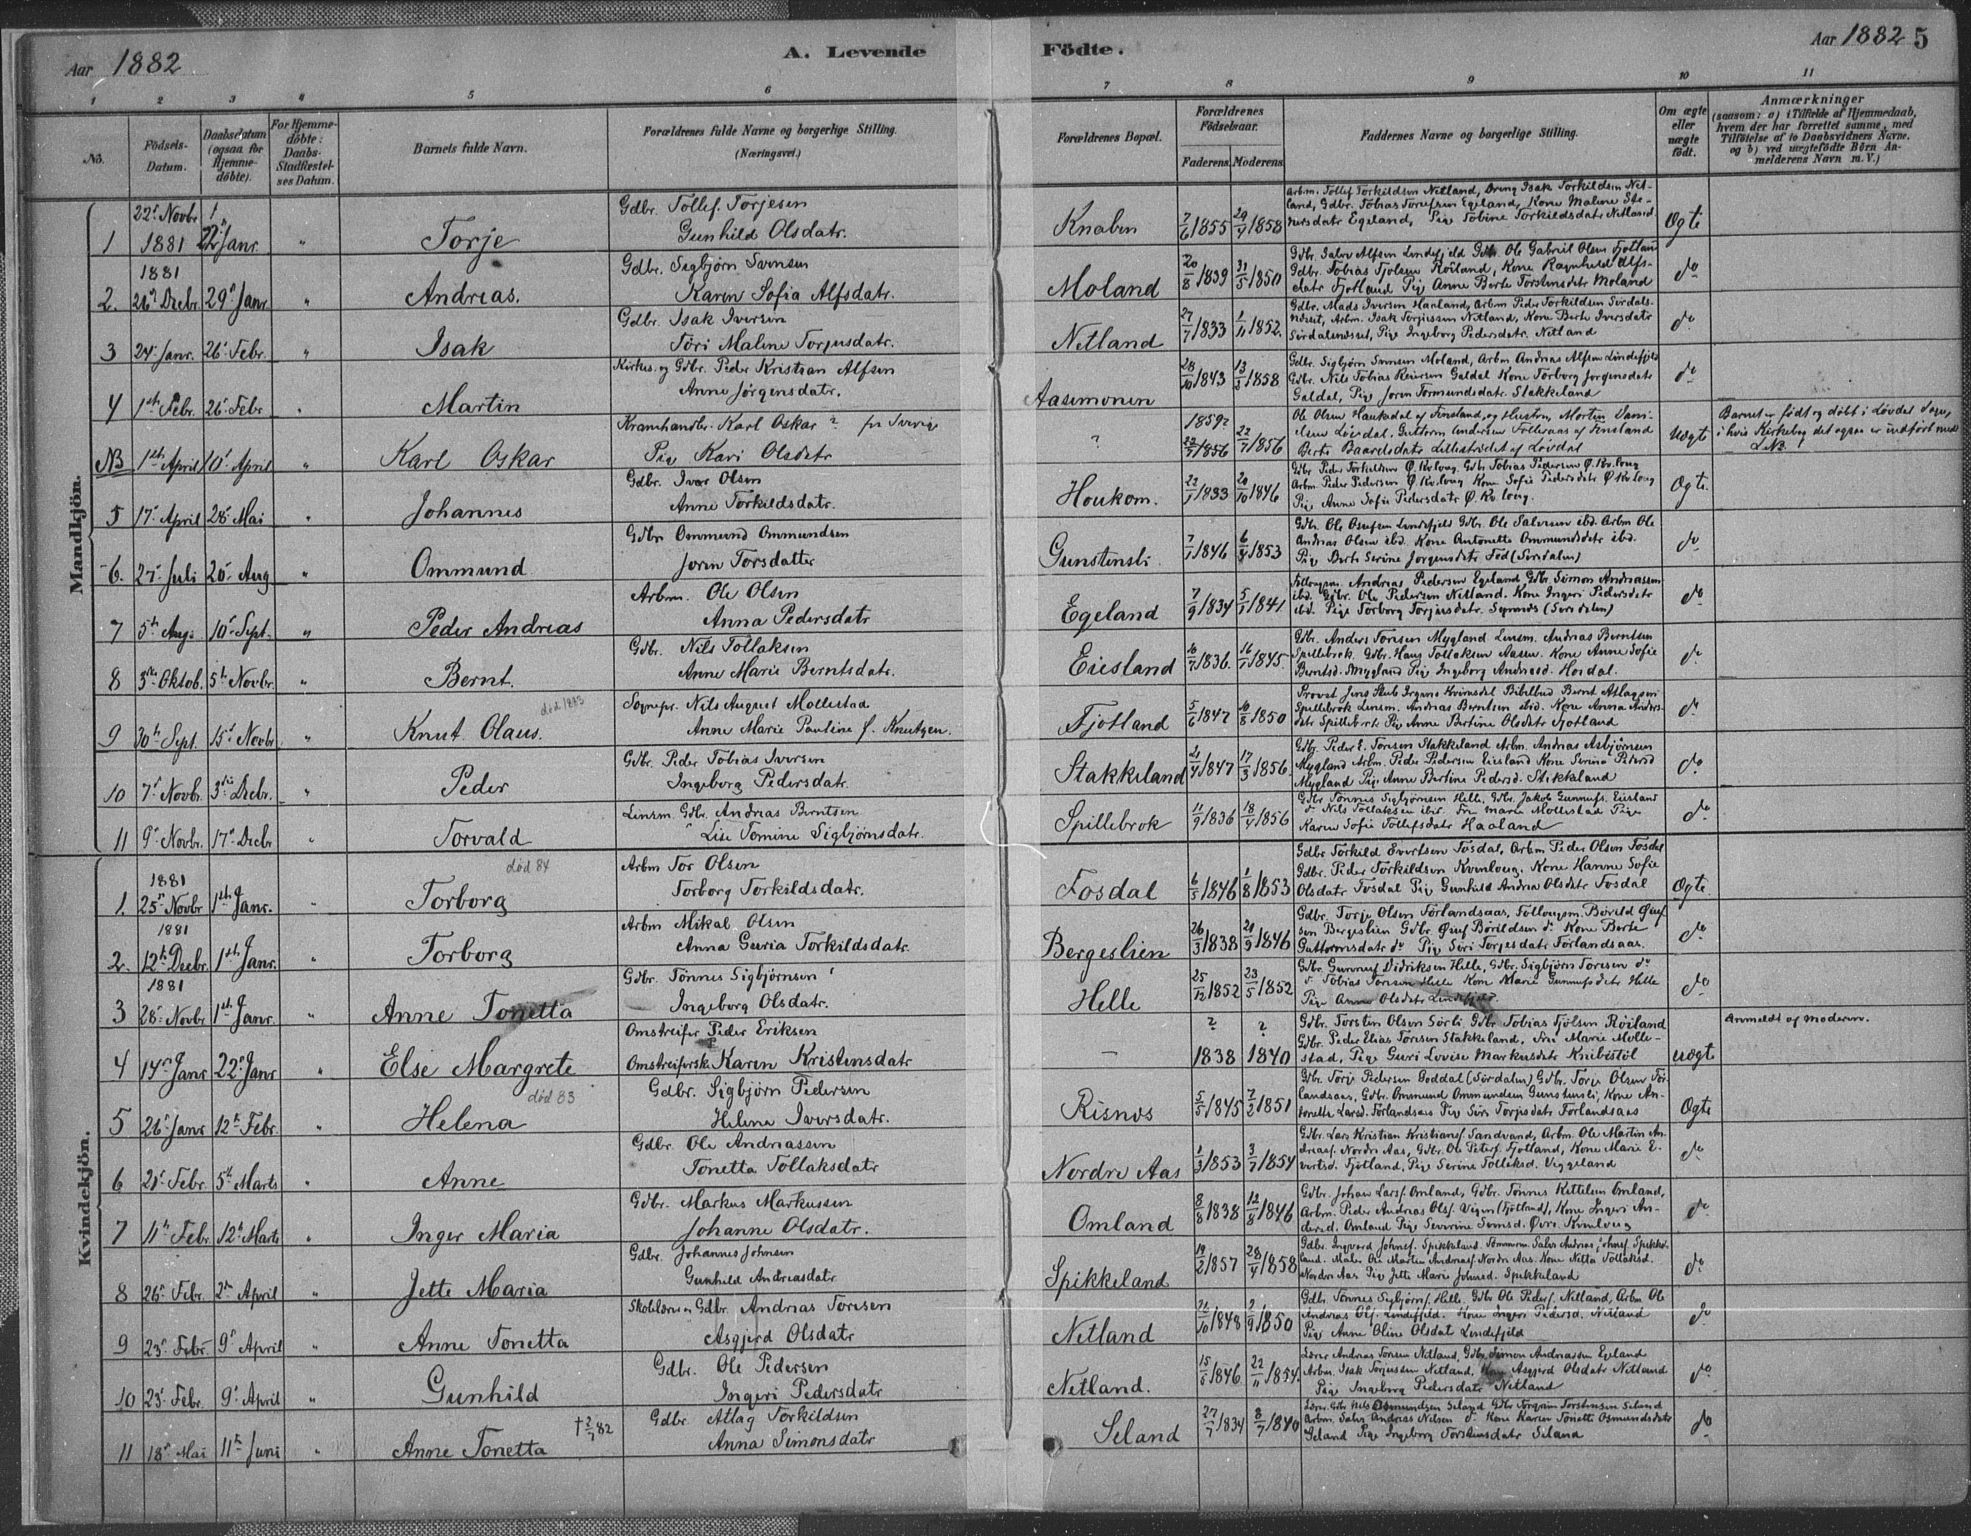 Aar 1882
A. Levende
Födte.
Aar 1882 5
1 2 3 4 5 6 7 8 9 10 11
No.
Födsels-Datum.
Daabsdatum (ogsaa for Hjemmedöbte).
For Hjemmedöbte: Daabs-Stadfæstelses Datum.
Barnets fulde Navn.
Forældrenes fulde Navne og borgerlige Stilling.
(Næringsvei.)
Forældrenes Bopæl.
Forældrenes Födselsaar.
Faderens. Moderens.
Faddernes Navne og borgerlige Stilling.
Om ægte eller uægte födt.
Anmærkninger
(saasom: a) i Tilfælde af Hjemmedaab, hvem der har forrettet samme, med Tilföielse af to Daabsvidners Navne, og b) ved uægtefödte Börn Anmelderens Navn m. V.)
Mandkjön.
1 22de Novbr 1881 1/22 Janr. " Torje
Gdbr. Tollef Torjesen
Gunhild Olsdatr.
Knaben 7/6 1855 29/4 1858
Arbm. Tollef Torkildsen Netland, Dreng Isak Torkildsen Netland, Gdbr. Tobias Egeland, Kone Malene Egeland, Pige Tobine Torkildsdatr Netland
Ægte
1881
2. Decbr. 29. Janr. " Andreas.
Gdbr. Sigbjørn Svensen
Karen Sofia Alfsdatr.
Moland 20/8 1839 31/5 1850
Gdbr. Salve Alfsen Lindefjeld Gdb. Ole Gabriel Olsen Fjotland
Gdbr. Tobias Fjolsen Röiland, Kone Ragnhild Alfsdatr Fjotland Pig Anne Berte Torstensdatr Moland
do
3 24 Janr. 26 Febr. " Isak
Gdbr. Isak Iversen
Töri Malene Torjusdatr.
Netland 27/7 1833 1/11 1852.
Gdbr. Mads Iversen Haaland, Arbm Peder Torkildsen Sirdalsnæset, Arbm. Isak Torjussen Netland, Kone Berte Iversdatr
Pige Ingeborg Pedersdatr. Netland
do
4 1ste Febr. 26 Febr. " Martin
Kirkes. og Gdbr. Peder Kristian Alfsen
Anne Jørgensdatr.
Aasemonen 28/10 1843 13/3 1858
Gdbr. Sigbjørn Svensen Moland, Arbm Andreas Alfsen Lindefjeld
Gdbr. Nils Tobias Reiersen Galdal Kone Torborg Jorgensdatr
Galdal, Pig Joren Tormundsdatr. Stakkeland
do
NB 1ste April 10 April " Karl Oskar
Kramhandler Karl Oskar ? fra Sverige
Pige Kari Olsdatr
" 1859? 22/7 1856
Ole Olsen Haukedal af Finsland, og Hustru, Morten Danielsen Løvdal. Guttorm Andersen Follevaas af Finsland
Berte Baardsdatr Lillestrædet af Løvdal
Uægte
Barnet er født og døbt i Løvdal Sogn, i hvis Kirkebog det ogsaa er indført med L.No.
5 17 April 28 Mai " Johannes
Gdbr. Ivar Olsen
Anne Torkildsdatr.
Houkom. 22/1 1833 20/10 1846
Gdbr Peder Torkildsen Ø. Kvlong. Gdb Tobias Pedersen Ø. Kv.long
Arbm. Peder Pedersen Ø. Kv.long Kone Sofie Pedersdatr Ø Kvlong
Pig Anne Sofie Pedersdatr Ø. Kv long.
Ægte
6. 27 Juli 20 Aug " Ommund
Gdbr Ommund Ommundsen
Joren Torsdatter
Gunstensli 7/1 1846 6/4 1853
Gdbr. Ole Lindefjeld Gdbr. Ole Salvesen ibd. Arbm Ole
Andreas Olsen ibd. Kone Antonette Ommundsdatr ibd.
Pige Berte Serine Jorgensdatr Fed (Sirdalen)
do
7 5te Aug. 10 Sept. " Peder Andreas
Arbm. Ole Olsen
Anna Pedersdatr
Egeland 7/9 1834 5/1 1841
Andreas Pedersen Egeland Gdbr. Simon Andreassen
ibd. Gdbr. Ole Pedersen Netland. Kone Ingeri Pedersdatr
ibd. Pige Torborg Torjusdatr. (Sirdalen)
do
8 3die Oktob. 5te Novbr. " Bernt.
Gdbr. Nils Tollaksen
Anne Marie Berntsdatr.
Eiesland 10/7 1836. 16/7 1845.
Gdbr. Anders Tonesen Mygland Lensm. Andreas Berntsen
Spillebrok. Gdbr. Hans Tollaksen Aasen. Kone Anne Sofie
Berntsd. Mygland Pig Ingeborg Andreasd. Hosdal.
do
9 30te Sept. 15de Novbr " Knut Olaus.
død 1883
Sognepr. Nils August Mollestad
Anne Marie Pauline f. Knutzen.
Fjotland 5/6 1847 10/8 1850
Provst Jens Stub Irgens Kvinesdal Bernt
Spillebrok Lensm. Andreas Berntsen ibid. Kone Anna Andersdatr Spillebrok Pig Anne Bertine Olsdatr Fjotland
do
10 7de Novbr. 3die Decbr. " Peder
Gdbr. Peder Tobias Iversen
Ingeborg Pedersdatr.
Stakkeland 21/4 1847 17/3 1856.
Gdbr Peder E. Tonesen Stakkeland Arbm. Andreas Asbjörnsen
Mygland Arbm. Peder Pedersen Eiesland Kone Serine Petersd
Mygland Pige Anne Bertine Pedersd. Stakkeland
do
11 9de Novbr. 17de Decbr " Torvald
Lensm. Gdbr. Andreas Berntsen
Lise Tomine Sigbjørnsdatr.
Spillebrok 11/9 1836 18/4 1856
Gdbr Tønnes Sigbjørnsen Helle, Gdbr. Jakob Gunnufs. Eiesland
do Nils Tollaksen ibid. Fru Marie Mollestad Pige
Karen Sofie Tollefsdatr Haaland
do
Kvindekjön.
1. 1881 25de Novbr 1ste Janr. " Torborg
død 84
Arbm Tor Olsen
Torborg Torkildsdatr.
Fosdal 6/5 1846 1/8 1853
Gdbr Torkild Evertsen Fosdal, Arbm Peder Olsen Fosdal
Gdbr. Peder Torkildsen Kvinlong, Kone Hanne Sofie
Olsdatr Fosdal Pig Gunhild Andrea Olsdatr Fosdal
Ægte
1881
2. 12te Decbr. 1ste Janr. " Torborg
Arbm Mikal Olsen
Anna Guria Torkildsdatr.
Bergeslien 26/3 1838 21/9 1846
Gdbr. Torje Olsen Førlandsaas, Bøvild
Bergeslien Gdbr Kone Berte
Guttormsdatr do Pige Siri Torjesdatr Førlandsaas.
do
1881
3 28 Novbr 1ste Janr. " Anne Tonetta
Gdbr. Tønnes Sigbjørnsen
Ingeborg Olsdatr.
Helle 25/12 1852 23/5 1852
Gdbr Gunnuf Didriksen Helle, Gdbr. Sigbjørn Tonesen do
do Tobias Tonsen Helle Kone Marie Gunnufsdatr Helle
Pige Anne Olsdatr Lindefjeld.
do
4 14de Janr 22de Janr " Else Margrete
Omstreifer Peder Eriksen
Omstreiferske Karen Kristensdatr
— ? 1838 ? 1840
Gdbr. Torsten Olsen Sørli Gdbr Tobias Fjolsen Röiland
Gdbr. Peder Elias Tonesen Stakkeland, Fru Marie Mollestad, Pige Guri Lovise Markusdatr Knibestöl
uægt
Anmeldt af moderen.
5 26 Janr 12te Febr. " Helena
død 83
Gdbr. Sigbjørn Pedersen
Helene Iversdatr.
Risnes 5/5 1845 7/3 1851
Gdbr. Torje Pedersen Goddal (Sirdalen) Gdbr. Torje Olsen Førlandsaas, Gdbr. Ommund Ommundsen Gunstensli, Kone Antonette Larsd. Førlandsaas Pige Siri Torjesdatr Førlandsaas
Ægte
6 21 Febr. 5te Marts " Anne
Gdbr. Ole Andreassen
Tonetta Tollaksdatr
Nordre Aas 1/3 1853 3/7 1854
Gdbr. Lars Kristian Kristiansf Sandvand, Arbm. Ole Martin Andreasf. Nordre Aas, Gdbr. Ole Petersf Fjotland, Kone Marie Evertsd. Fjotland, Pige Serine Tollaksd. Viggeland
do
7 11te Febr. 12te Marts " Inger Maria
Gdbr. Markus Markussen
Johanne Olsdatr.
Omland 8/8 1838 12/8 1846
Gdbr. Johan Larsf. Omland, Gdbr. Tønnes Kettelsen Omland,
Arbm. Peder Andreas Olsf. Vigen (Fjotland), Kone Ingeri Andersd. Omland Pige Severine Øvre Kvinlong
do
8 26 Febr. 2den April " Jette Maria
Gdbr. Johannes Johnsen
Gunhild Andreasdatr
Spikkeland 19/2 1857 28/4 1858
Gdbr. Ingvard Johnsf. Spikkeland. Tømmerm. Salve Andreas Johnsf. Spikkeland. Maler Ole Martin Andreasf. Nordre Aas. Kone Netta Tollaksd.
Nordre Aas Pig Jette Marie Johnsd. Spikkeland
do
9 23 Febr. 9de April " Anne Tonetta
Skolelærer og Gdbr. Andreas Tonesen
Asgjerd Olsdatr
Netland 21/10 1848 2/9 1850
Gdbr Tønnes Sigbjørnsf. Helle. Gdbr Ole Pedersf. Netland, Arbm Ole
Andreas Olsf. Lindefjeld. Kone Ingeri Pedersd. Netland
Pige Anne Oline Olsdat Lindefjeld
do
10 23 Febr. 9de April " Gunhild
Gdbr. Ole Pedersen
Ingeri Pedersdatr
Netland. 15/5 1846. 22/11 1854.
Lærer Andreas Tonsen Netland, Gdbr. Simon Andreassen Egeland
Arbm. Isak Torjussen Netland, Kone Asgjerd Olsdatr Netland
Pige Ingeborg Pedersdatr Netland
do
11 18de Mai 11te Juni " Anne Tonetta
† 2/7 82
Gdbr Atlag Torkildsen
Anna Simonsdatr
Seland 27/7 1834 8/7 1840
Lærer Gdbr Nils Osmundsen Seland Gdbr Torgrim Torstensen Seland
Arbm. Salve Andreas Nilsen do Kone Karen Tonette Osmundsdatr
Seland Pige Ingeborg Torstensdatr Seland
do